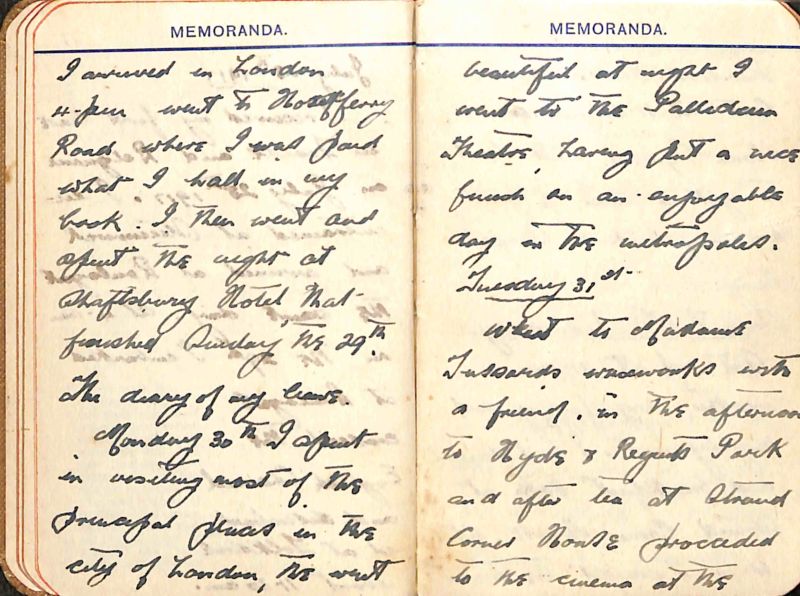 MEMORANDA.
I arrived in London
4-pm went to Horseferry
Road where I was paid
what I had in my
book. I then went and
spent the night at
Shaftsbury Hotel that
finished Sunday, the 29th.
The diary of my leave.
Monday 30th I spent
in visiting most of the
principal places in the
city of London, the went
MEMORANDA.
beautiful at night I
went to the Palledium
Theatre, having put a nice
finish on an enjoyable
day in the metropoles.
Tuesday 31st
Went to Madame
Tussards waxworks with
a friend. in the afternoon
to Hyde & Regents Park
and after tea at Strand
Corner House procceded
to the cinema at the